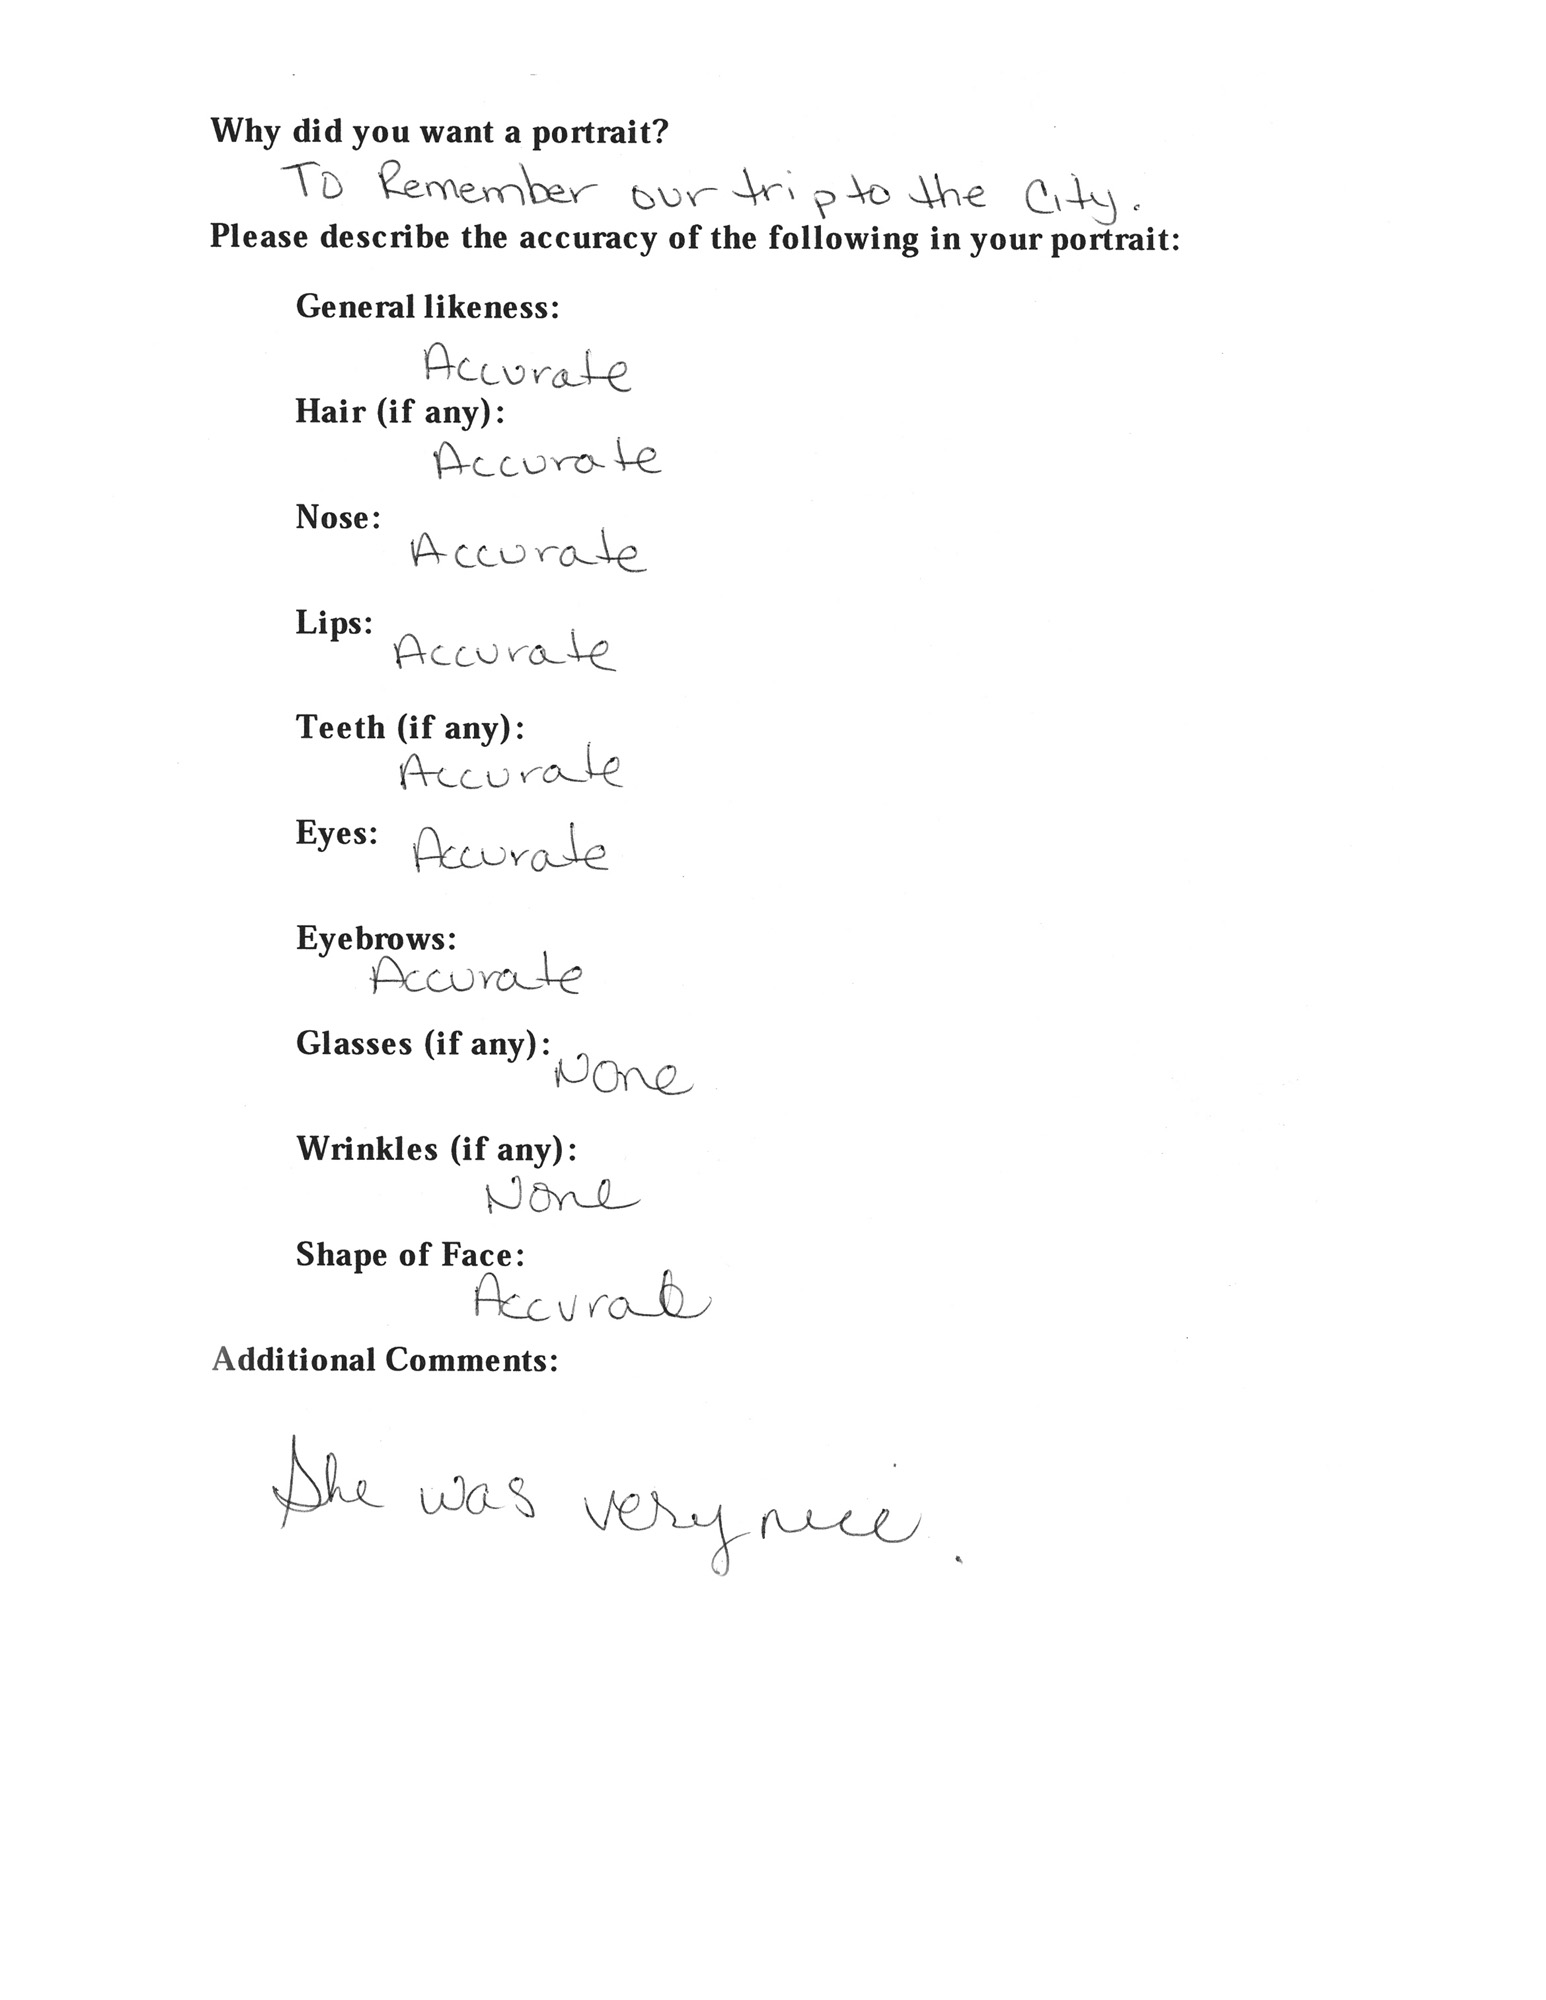 Why did you want a portrait?
To Remember our trip to the City.
Please describe the accuracy of the following in your portrait:
General likeness:
Accurate
Hair (if any):
Accurate
Nose:
Accurate
Lips:
Accurate
Teeth (if any):
Accurate
Eyes: Accurate
Eyebrows:
Accurate
Glasses (if any):
None
Wrinkles (if any):
None
Shape of Face:
Accurate
Additional Comments:
She was very nice.